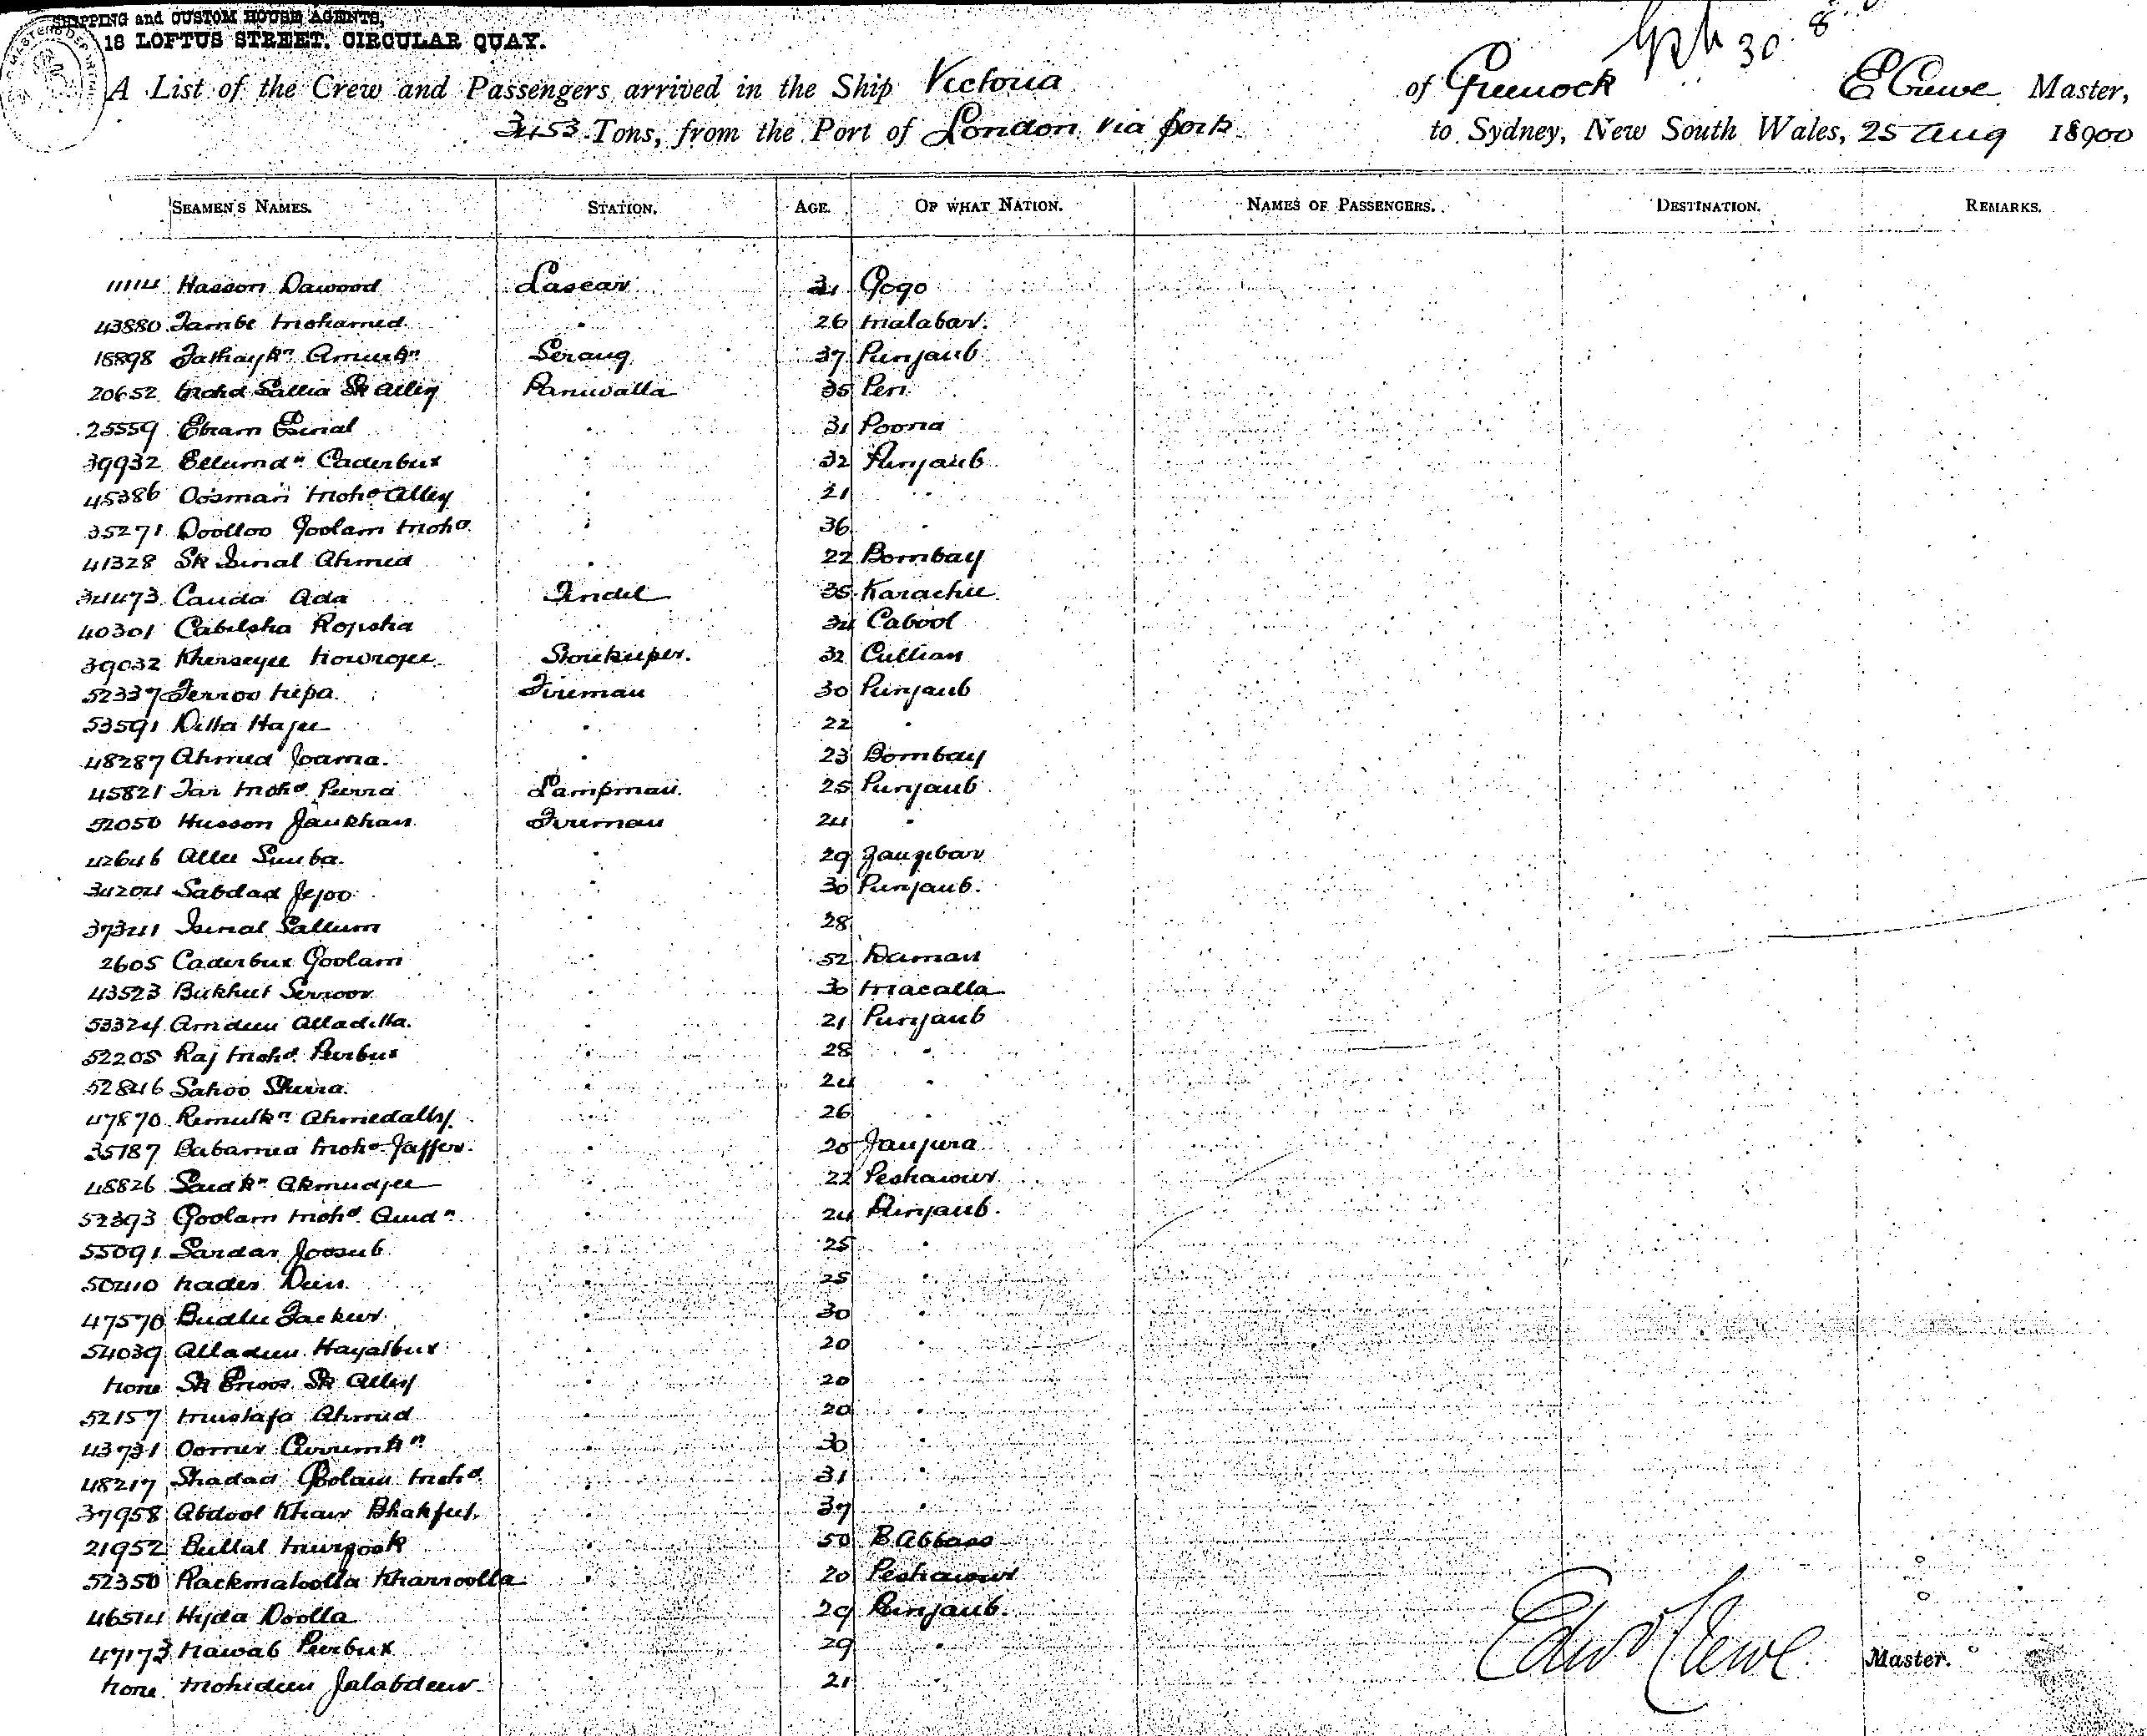 SHIPPING and CUSTOM HOUSE AGENTS,
18 LOFTUS STREET, CIRCULAR QUAY.
30 8
A List of the Crew and Passengers arrived in the Ship Victoria of Greenock E Crewe Master,
3453 Tons, from the Port of London via ports to Sydney, New South Wales, 25 Aug 18900
SEAMEN'S NAMES. STATION. AGE. OF WHAT NATION. NAMES OF PASSENGERS. DESTINATION. REMARKS.
11114 Hasson Dawood Lascar 31 Gogo
43880 Jambe Mohamed " 26 Malabar.
18898 Serang 37 Punjaub
20652 Mohd Sallia Sk Alley Paniwalla 35 Pen
25559 Ebram Esmal " 31 Poona
39932 Ellumdn Caderbux " 32 Punjaub
45386 Oosman Mohd Alley " 21 "
35271 Doolloo Goolam Mohd " 36 "
41328 Sk Ismal Ahmed " 22 Bombay
34473 Cauda Ada Tindel 35 Karachie
40301 Cabilsha Rojisha " 34 Cabool
39032 Kherseyee Nowrojee Storekeeper. 32 Cullian
52337 Ferroo Nepa Fireman 30 Punjaub
53591 Ditta Hajee " 22 "
48287 Ahmed Joama. " 23 Bombay
45821 Jan Mohd Peera Lampman 25 Punjaub
52050 Husson Jankhan Fireman 24 "
42646 Allee Sumba. " 29 Zangibar
34204 Sabdad Jejoo " 30 Punjaub.
37341 Ismal Sallum " 28
2605 Caderbux Goolam " 52 Daman
43523 Bukhut Seroor " 30 Macalla
53324 Amdeen Alladitta. " 21 Punjaub
52205 Raj Mohd Peerbux " 28 "
52846 Sahoo Sheera. " 24 "
47870 Remutkn Ahmedally. " 26 "
35187 Babamia Mohd Jaffer. " 20 Janjira
48826 Saidkn Akmudjee " 22 Peshawur
52393 Goolam Mohd " 24 Punjaub.
55091 Sardar Joosub " 25 "
50410 Nader Deen " 25 "
47570 Budlee Fackeer " 30 "
54039 Alladeen Hayatbux " 20 "
None Sk Sk Alley " 20 "
52157 Mustafa Ahmed " 20 "
43731 Oomer Currumkn " 30 "
48217 Shadad Goolam Mohd " 31 "
37958 Abdool Khair " 37 "
21952 Bullal Murgook " 50 B Abbass
52350 Rackmatoolla Khairoolla " 20 Peshawur
46514 Hyda Doolla " 29 Punjaub.
47173 Nawab Peerbux " 29 "
None. Mohideen Jalabdeen " 21 "
Edwd Crewe Master.